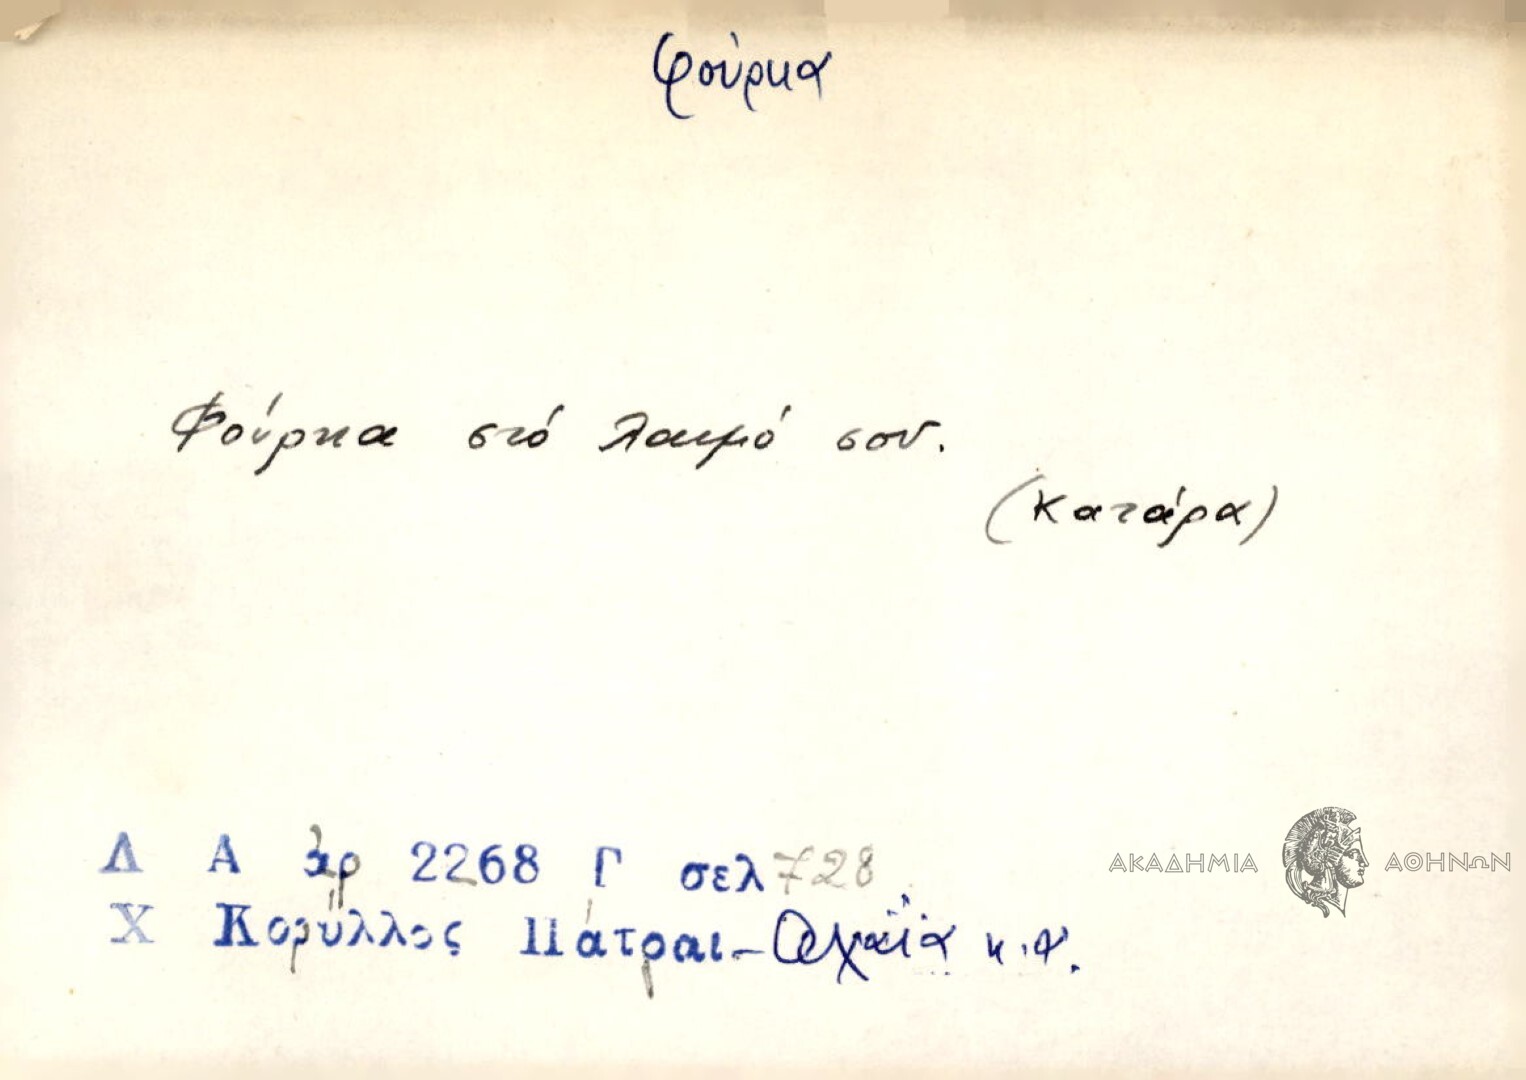 φούρκα
Φούρκα στό λαιμό σου.
(Κατάρα)
Λ Α ἀρ 2268 Γ σελ 728
Χ Κορύλλος Πάτραι - Ἀχαΐα κ.ἀ.
ΑΚΑΔΗΜΙΑ ΑΘΗΝΩΝ